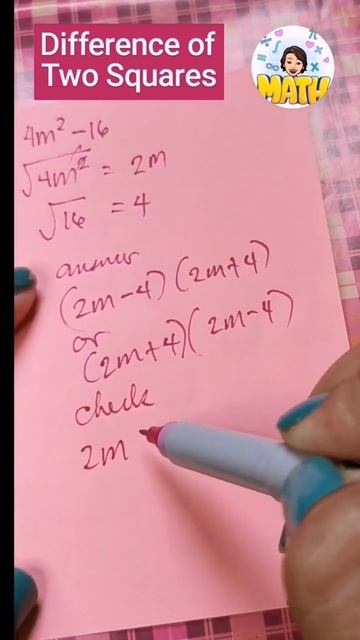 Difference of
Two Squares
MATH
4m² - 16
√4m² = 2m
√16 = 4
answer
(2m-4)(2m+4)
or
(2m+4)(2m-4)
check
2m